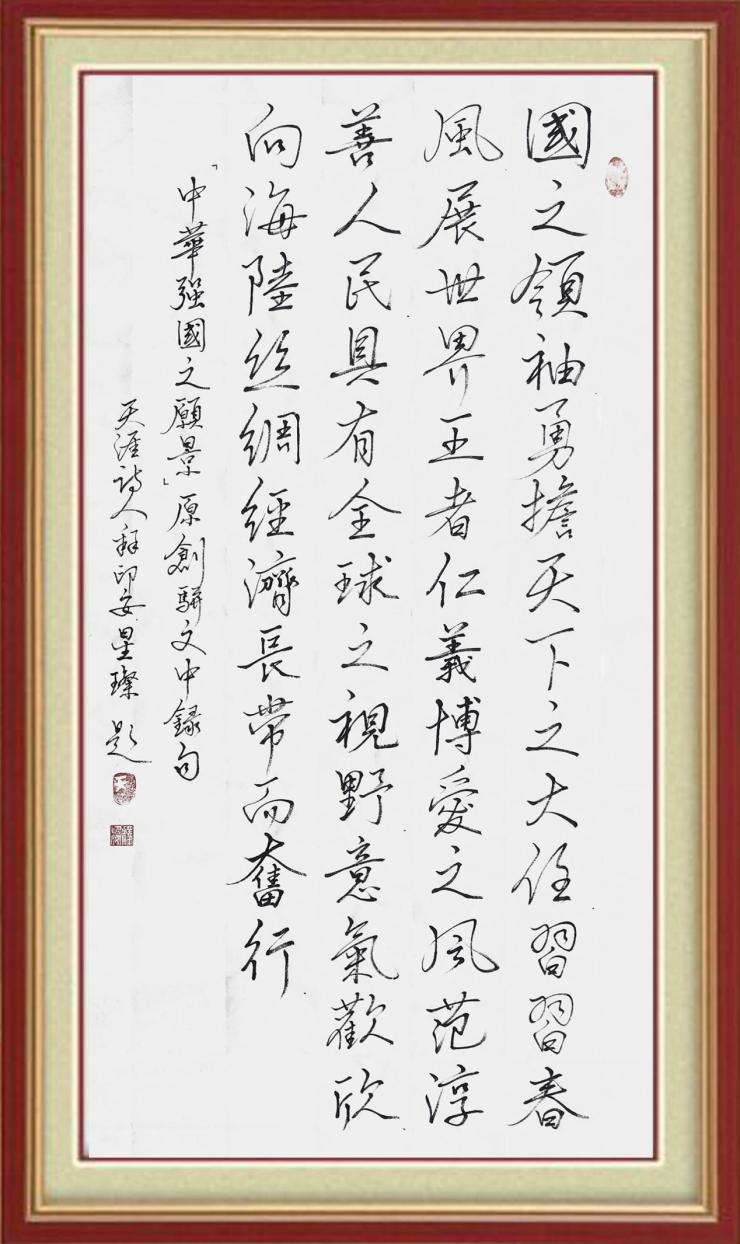 國之領袖勇擔天下之大任習習春
風展世界王者仁義博愛之风范淳
善人民具有全球之視野意氣歡欣
向海陸丝綢經濟長帶而奮行
「中華强國之願景」原創駢文中録句
天涯詩人释印安星璨題